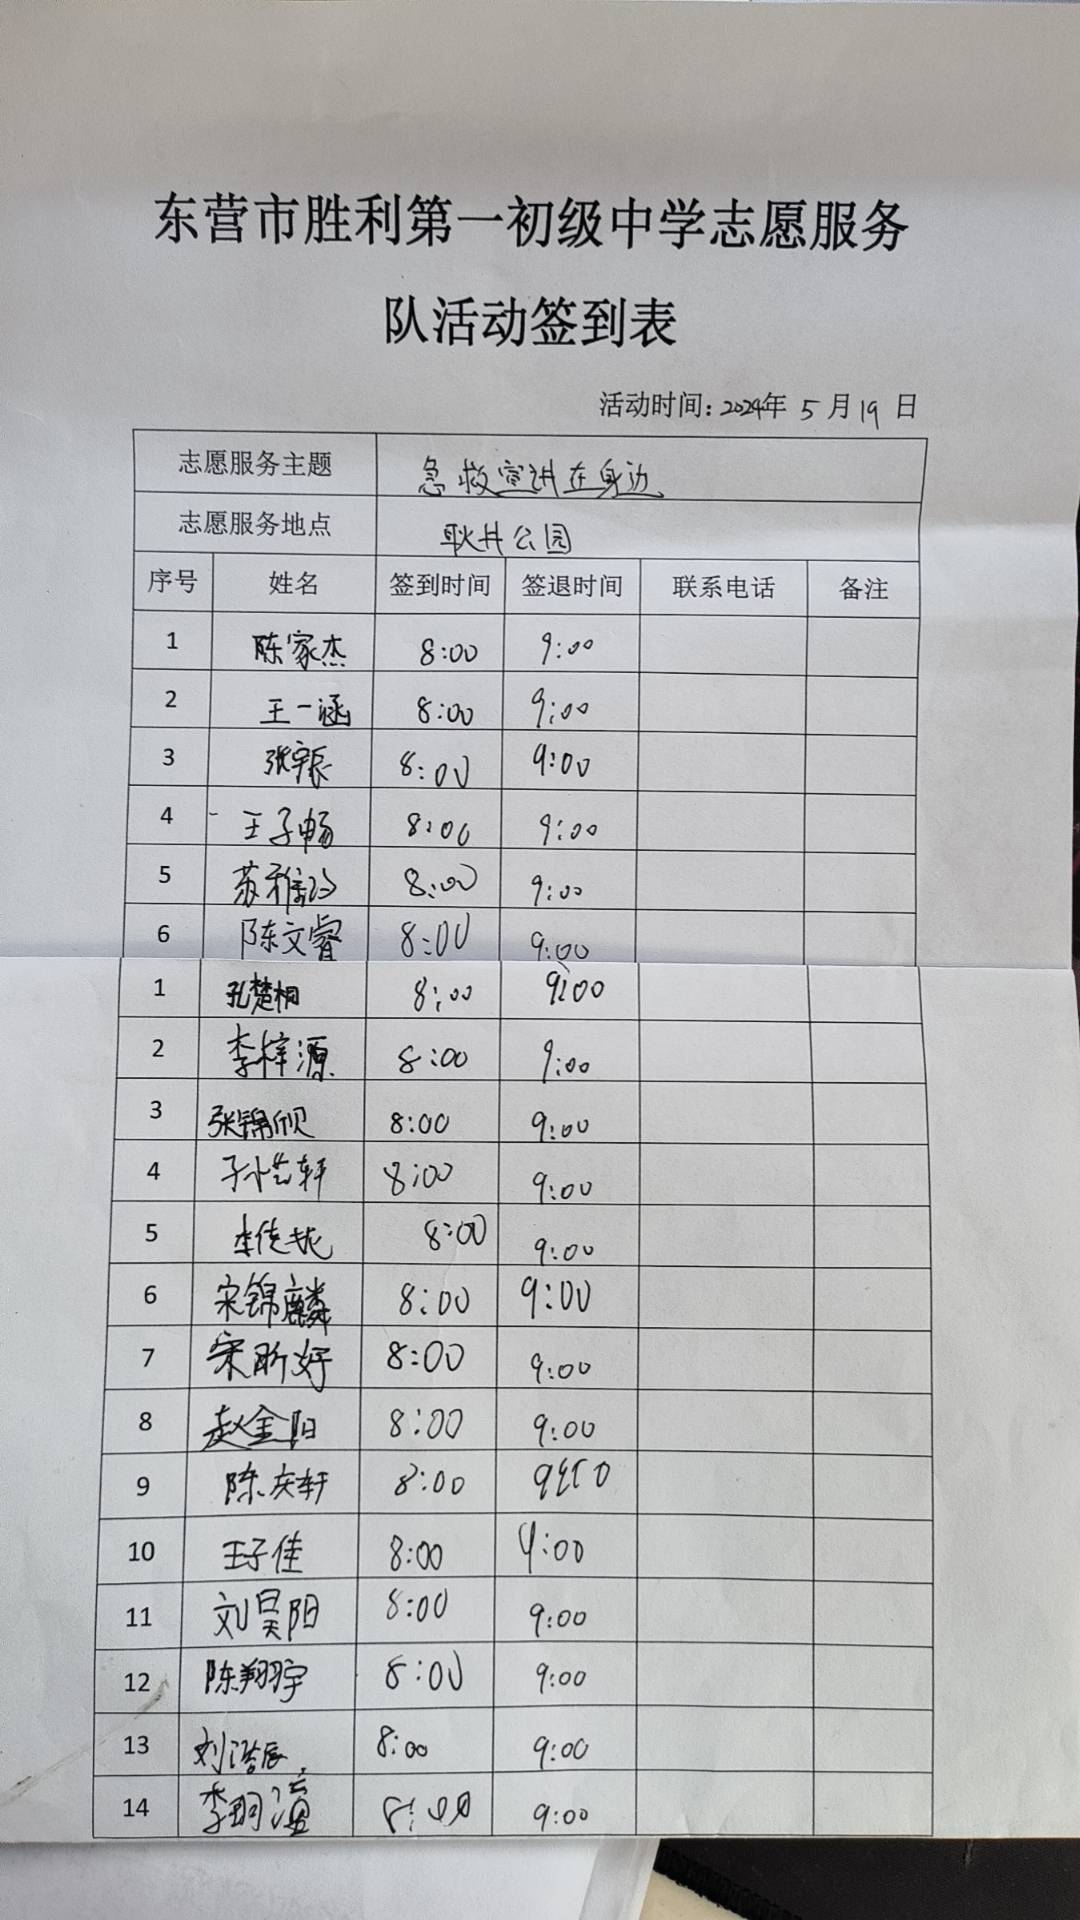 东营市胜利第一初级中学志愿服务
队活动签到表
活动时间：2024年 5 月 19 日
志愿服务主题 急救宣讲在身边
志愿服务地点 耿井公园
序号 姓名 签到时间 签退时间 联系电话 备注
1 陈家杰 8:00 9:00
2 王一涵 8:00 9:00
3 张宇辰 8:00 9:00
4 王子畅 8:00 9:00
5 苏雅 8:00 9:00
6 陈文睿 8:00 9:00
1 孔楚桐 8:00 9:00
2 李梓源 8:00 9:00
3 张锦欣 8:00 9:00
4 轩 8:00 9:00
5 李佳 8:00 9:00
6 宋锦麟 8:00 9:00
7 宋昕妤 8:00 9:00
8 赵金阳 8:00 9:00
9 陈庆轩 8:00
10 王子佳 8:00 9:00
11 刘昊阳 8:00 9:00
12 陈翔宇 8:00 9:00
13 刘浩辰 8:00 9:00
14 李 8:00 9:00